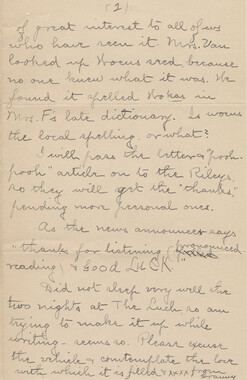 (2)
of great interest to all of us
who have seen it. Mrs. Van
looked up Wocus sred because
no one knew what it was. We
found it spelled Wokas in
Mrs. F's late dictionary. Is wocus
the local spelling, or what?
I will pass the letter & "pooh-
pooh" article on to the Rileys,
so they will get the "thanks,"
pending more personal ones.
As the news announcer says
"thanks for listening (pronounced
reading) & Good LUCK."
Did not sleep very well the
two nights at The Lueh, so am
trying to make it up while
writing - seems so. Please excuse
the vehicle & contemplate the love
with which it is filled & xxxx from